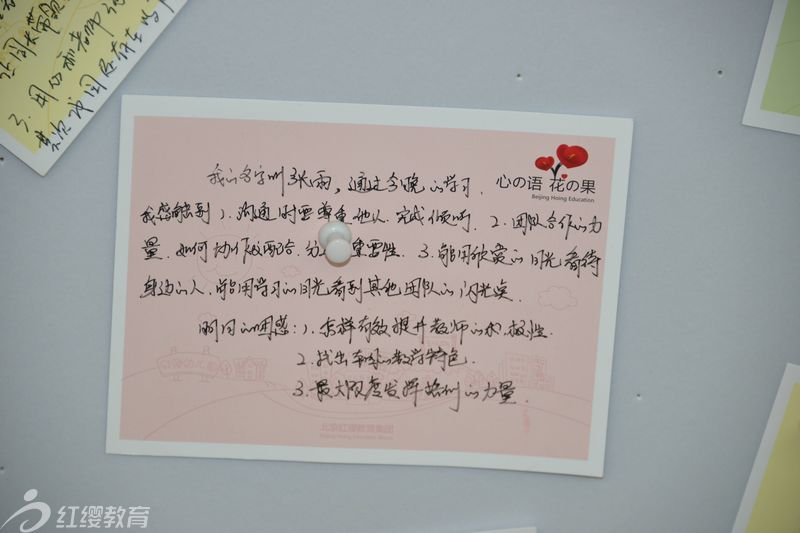 3. 用心和老师
我的名字叫张雨，通过今晚的学习，
心の语 花の果
Beijing Hoing Education
我感触到 1. 沟通时要尊重他人 完成倾听. 2. 团队合作的力
量. 如何协作 配合. 分 重要性. 3. 能用欣赏的目光看待
身边的人. 能用学习的目光看到其他团队的闪光点.
明日的困惑：1. 怎样有效提升教师的积极性.
2. 找出 的教学特色.
3. 最大限度发挥 的力量.
北京红缨教育集团
红缨教育